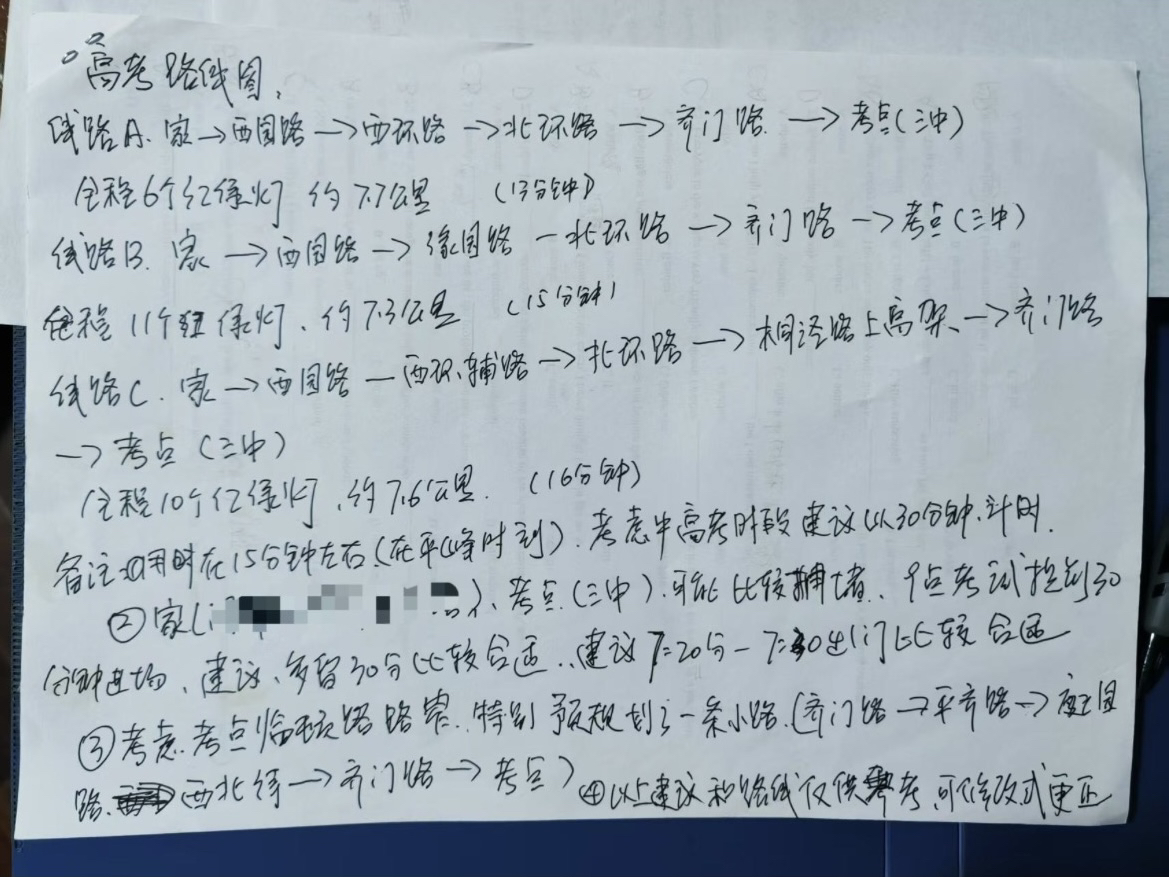 高考路线图,
线路A. 家→西园路→西环路→北环路→齐门路.→考点(三中)
全程6个红绿灯 约7.7公里 (13分钟)
线路B. 家→西园路→缘园路—北环路→齐门路→考点(三中)
全程11个红绿灯、约7.3公里 (15分钟)
线路C. 家→西园路—西环辅路→北环路→相泾路上高架、→齐门路
→考点(三中)
全程10个红绿灯、约7.6公里. (16分钟)
备注:①用时在15分钟左右(在平峰时刻). 考虑中高考时段建议以30分钟计时.
②家( )、考点(三中).可能比较拥堵、9点考试提前30
分钟进场、建议、多留30分比较合适..建议7:20分—7:30出门比较合适
③考虑.考点临顿路路窄.特别预规划了一条小路.(齐门路→平齐路→
路、西北街→齐门路→考点)
④以上建议和路线仅供参考.可修改或更正